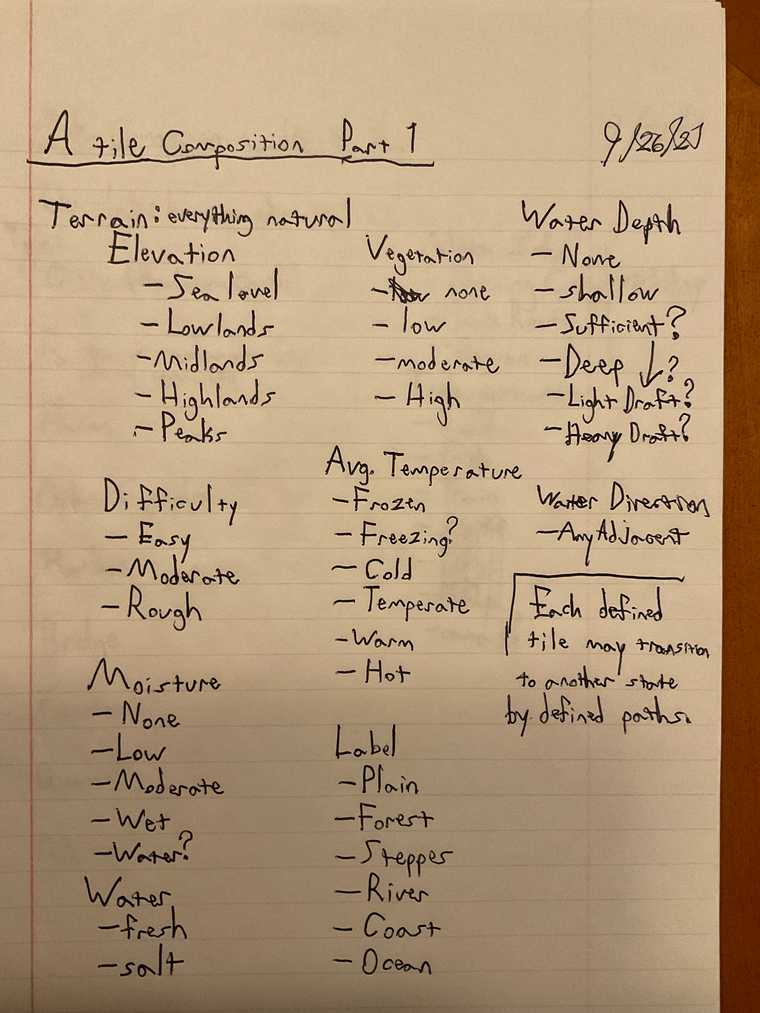 A tile Composition Part 1
9/26/21
Terrain: everything natural
Elevation
- Sea level
- Lowlands
- Midlands
- Highlands
- Peaks
Difficulty
- Easy
- Moderate
- Rough
Moisture
- None
- Low
- Moderate
- Wet
- Water?
Water
- fresh
- salt
Vegetation
- none
- low
- moderate
- High
Avg. Temperature
- Frozen
- Freezing?
- Cold
- Temperate
- Warm
- Hot
Label
- Plain
- Forest
- Steppes
- River
- Coast
- Ocean
Water Depth
- None
- shallow
- Sufficient?
- Deep ↓?
- Light Draft?
- Heavy Draft?
Water Direction
- Any Adjacent
Each defined
tile may transition
to another state
by defined paths.